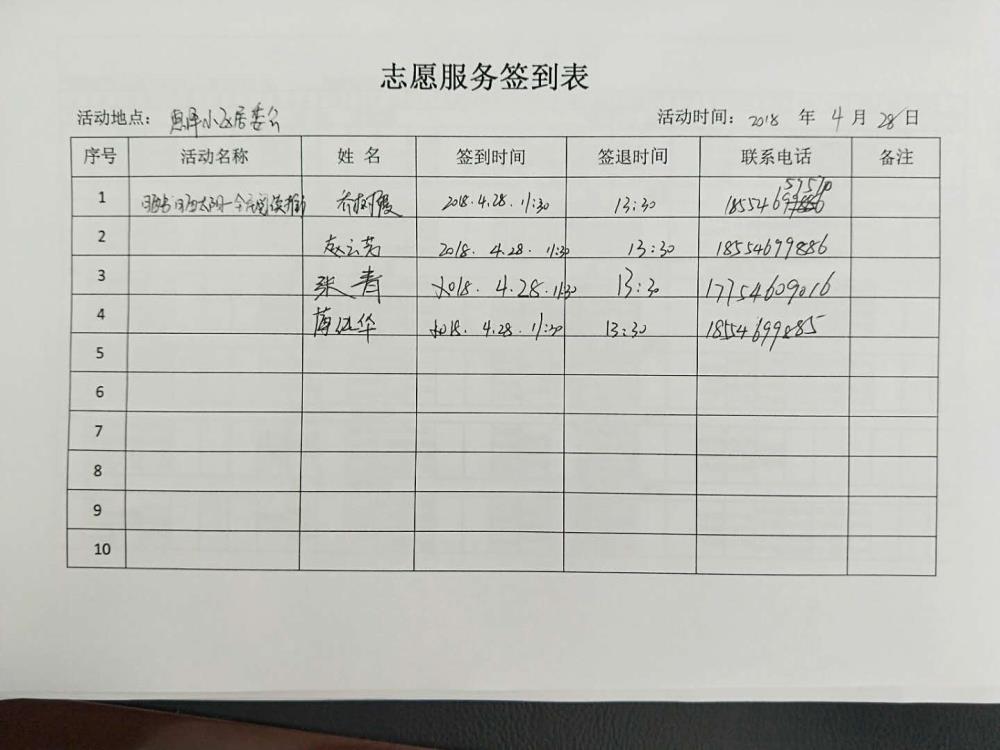 志愿服务签到表
活动地点： 小区居委会 活动时间： 2018 年 4 月 28 日
序号 活动名称 姓 名 签到时间 签退时间 联系电话 备注
1 2018.4.28.11:30 13:30
2 赵云芳 2018. 4.28. 11:30 13:30 18554699886
3 张青 2018. 4.28.11:30 13:30 17754609016
4 华 2018. 4.28. 11:30 13:30 18554699885
5
6
7
8
9
10